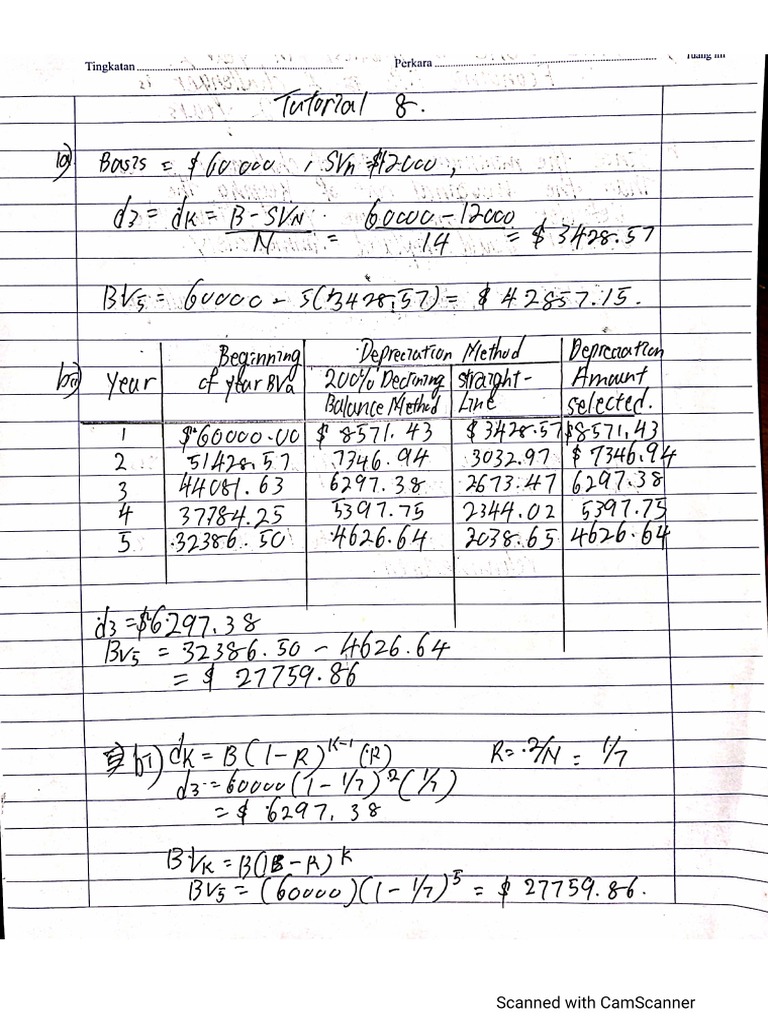 Tingkatan .......... Perkara ..........
Tutorial 8.
a) Basis = $60000 , SVn = $12000,
d3 = dk = B - SVN / N = 60000 - 12000 / 14 = $3428.57
BV5 = 60000 - 5(3428.57) = $42857.15.
Year | Beginning of year BVa | Depreciation Method: 200% Declining Balance Method | Straight-Line | Depreciation Amount selected.
1 $60000.00 $8571.43 $3428.57 $8571.43
2 51428.57 7346.94 3032.97 $7346.94
3 44081.63 6297.38 2673.47 6297.38
4 37784.25 5397.75 2344.02 5397.75
5 32386.50 4626.64 2038.65 4626.64
d3 = $6297.38
BV5 = 32386.50 - 4626.64
= $ 27759.86
bi) dk = B(1-R)^k-1 (R) R = 2/N = 1/7
d3 = 60000(1-1/7)^2(1/7)
= $ 6297.38
BVk = B(1-R)^k
BV5 = (60000)(1-1/7)^5 = $ 27759.86.
Scanned with CamScanner